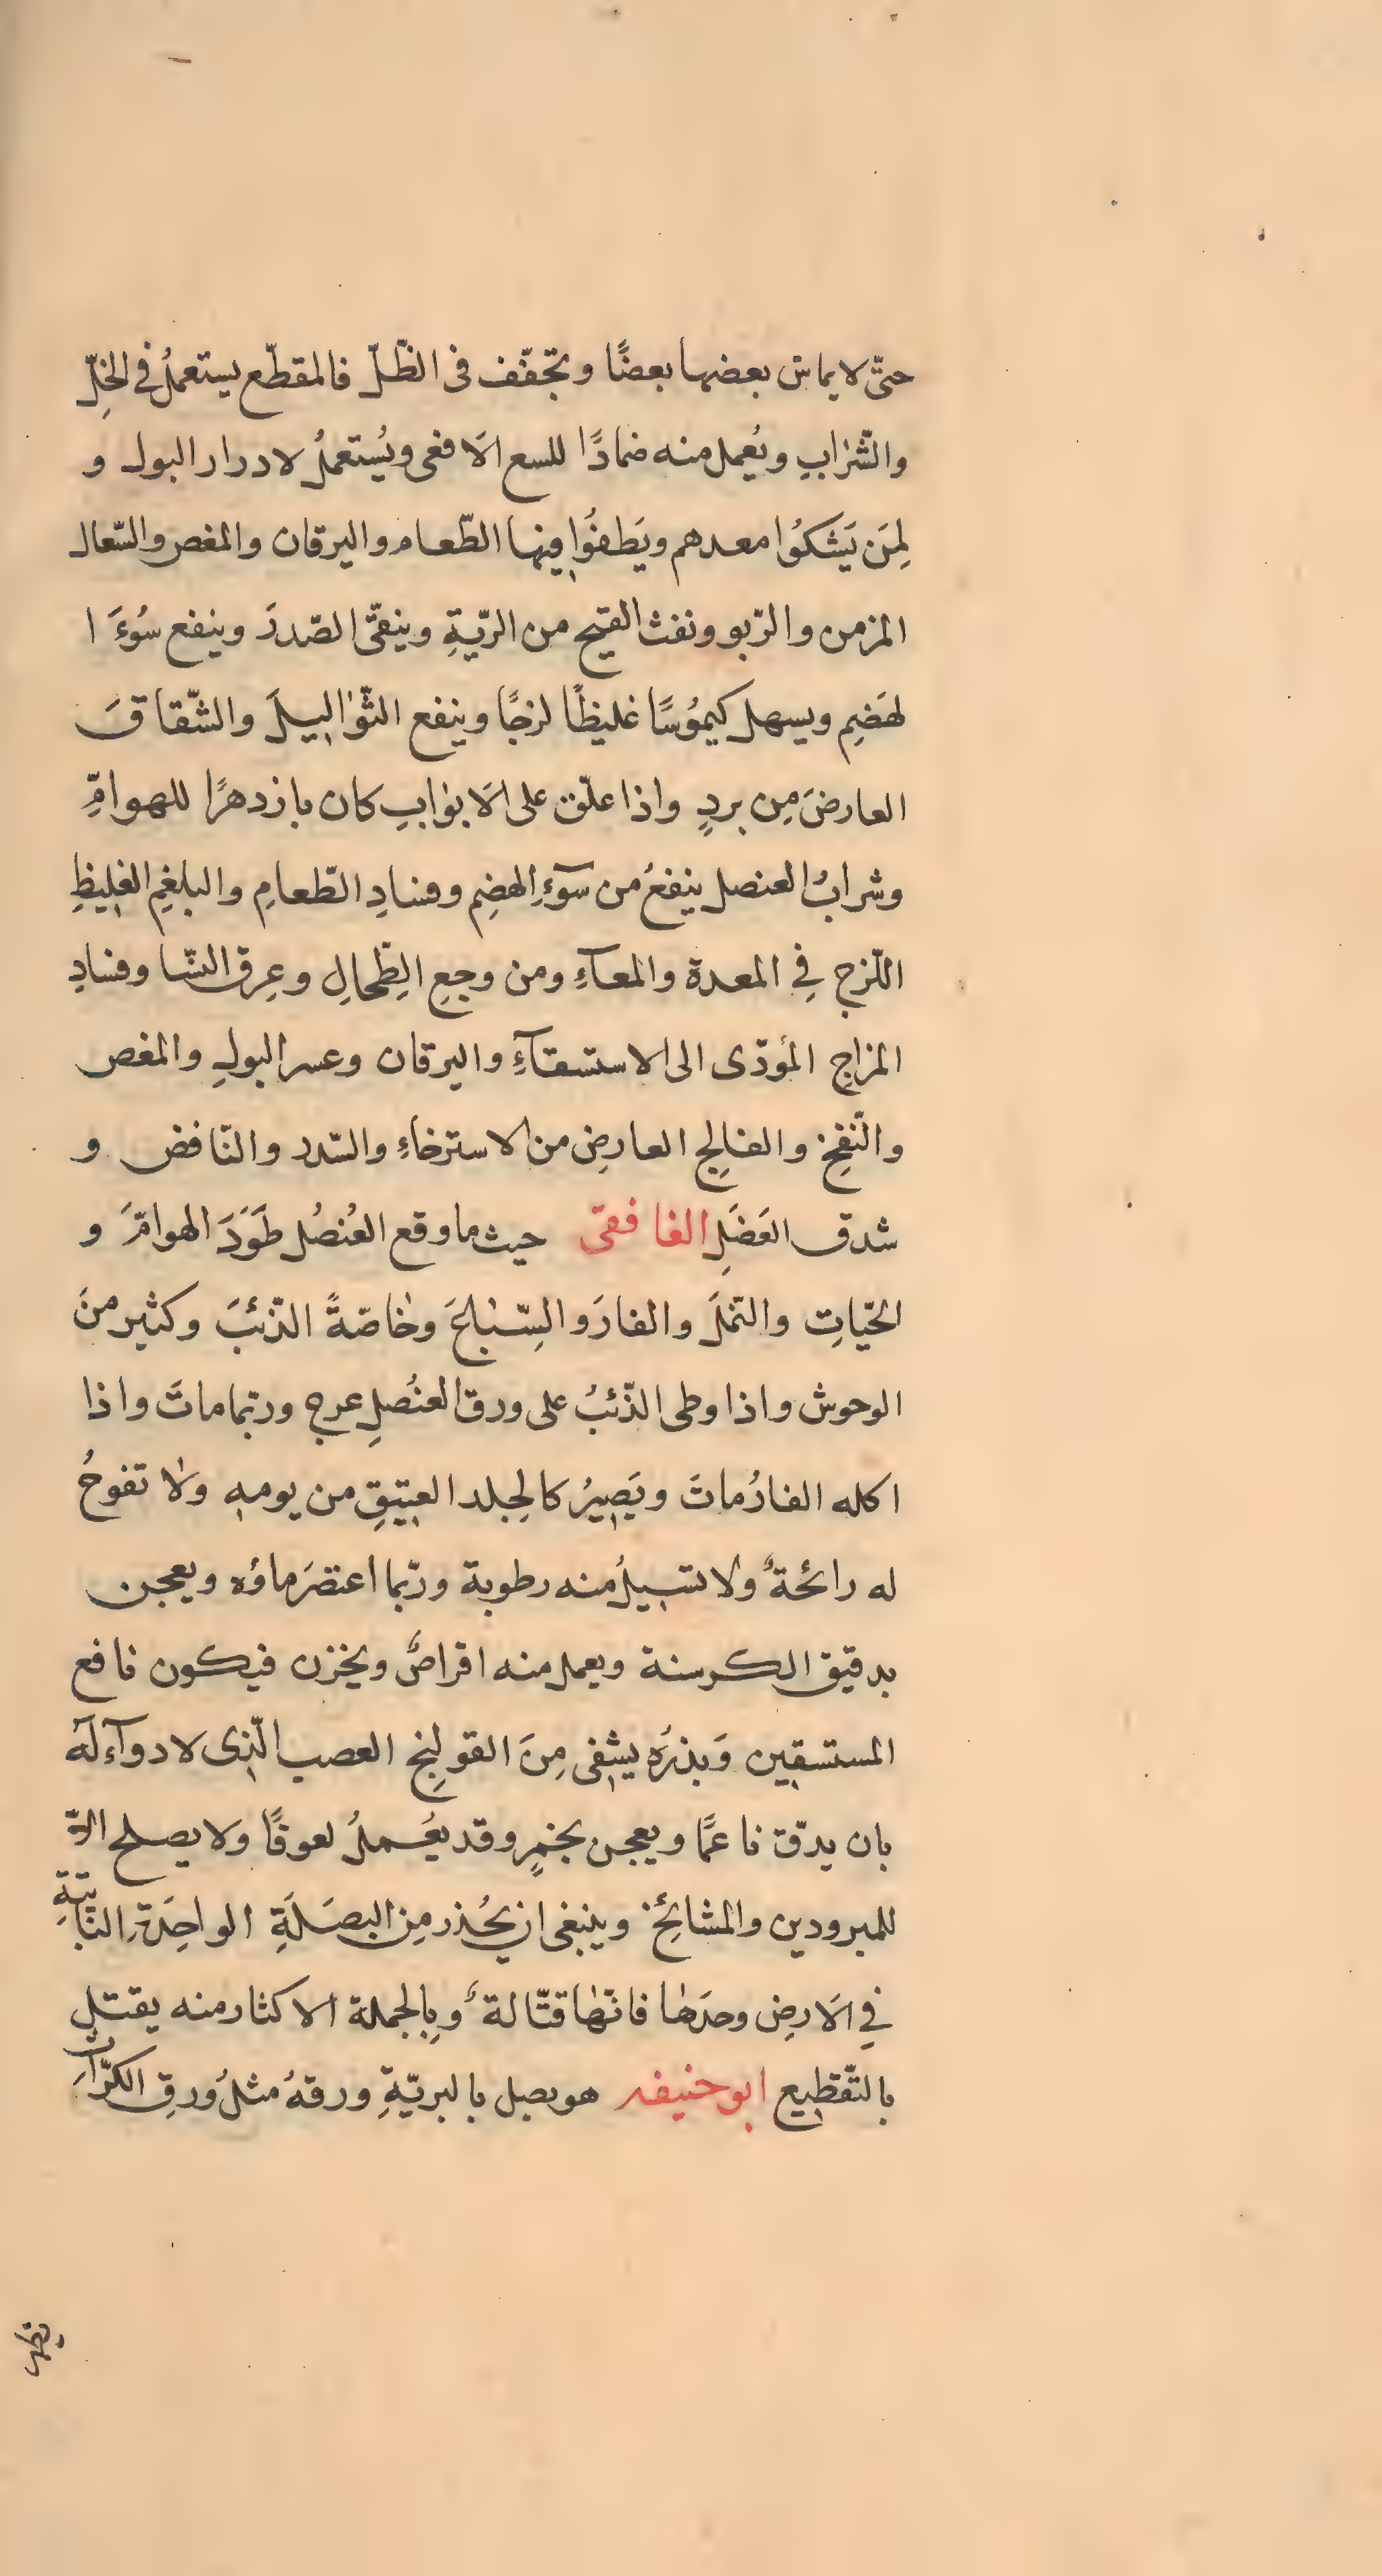 حتّى لا يماس بعضها بعضًا وتجفّف فى الظّلّ فالمقطّع يستعملُ فى الخلّ
والشّرابِ ويُعمل منه ضمادًا للسع الَافعى ويُستعملُ لادرار البول و
لِمَن يَشكوُا معدهم ويَطفوُا فيها الطّعام واليرقان والمغص والسّعال
المزمن والرّبو ونفث القيح من الرّيّةِ وينقّى الصّدرَ وينفع سُوءَ ا
لهَضِم ويسهل كيموُسًا غليظًا لزجًا وينفع الثّوٰاليلَ والشّقاقَ
العارضَ مِن بردٍ واذا علّق على الَابوٰابِ كان بازدهرًا للهوامِّ
وشرابُ العنصل ينفعُ من سوٓءِ الهضِم وفسادِ الطّعامِ والبلغِم الغليظِ
اللّزج فِي المعدة والمعآءِ ومن وجعِ الِطّحالِ وعِرق النسّا وفسادِ
المزاجِ المؤدّى الى الاستسقآءِ واليرقان وعسر البولِ والمغص
والنّفخِ والفالِج العارضِ من الاسترخاءِ والسّدد والنّافض و
شدق العَضَلِ الغافقىّ حيث ما وقع العُنصُل طَوَدَ الهوامّرَ و
الحيّاتِ والنّملَ والفارَ والسِّبٰاعَ وخٰاصّةً الذّئبَ وكثير منَ
الوحوش واذا وطى الذّئبُ على ورق العنصُلِ عرج وربّما ماتَ واذا
اكله الفارُ ماتَ ويَصيرُ كالجِلد العتيقِ من يومهِ ولٰا تفوحُ
له رائحةٌ ولا تسيلُ منه رطوبة وربّما اعتصَر ماؤه ويعجن
بدقيق الكرسنة ويعمل منه اقراصٌ ويخزن فيكون نافع
المستسقين وَبذرُه يشفى مِنَ القولِنج العصب الّذى لا دوآءَ لهٓ
بان يدقّ ناعمًّا ويعجن بخمرٍ وقد يعُملُ لعوقًا ولا يصلح الّا
للمبرودين والمشائِخ وينبغى ان يحُذر مِن البصَلَةِ الواحِدَةِ النّابتةِ
فِي الَارضِ وحدَهٰا فانّهٰا قتّالةٌ وبِالجملة الاكثار منه يقتل
بالتّقطيع ابو حنيفه هو بصل بالبريّةِ ورقهُ مثلُ ورقِ الكرّاثِ